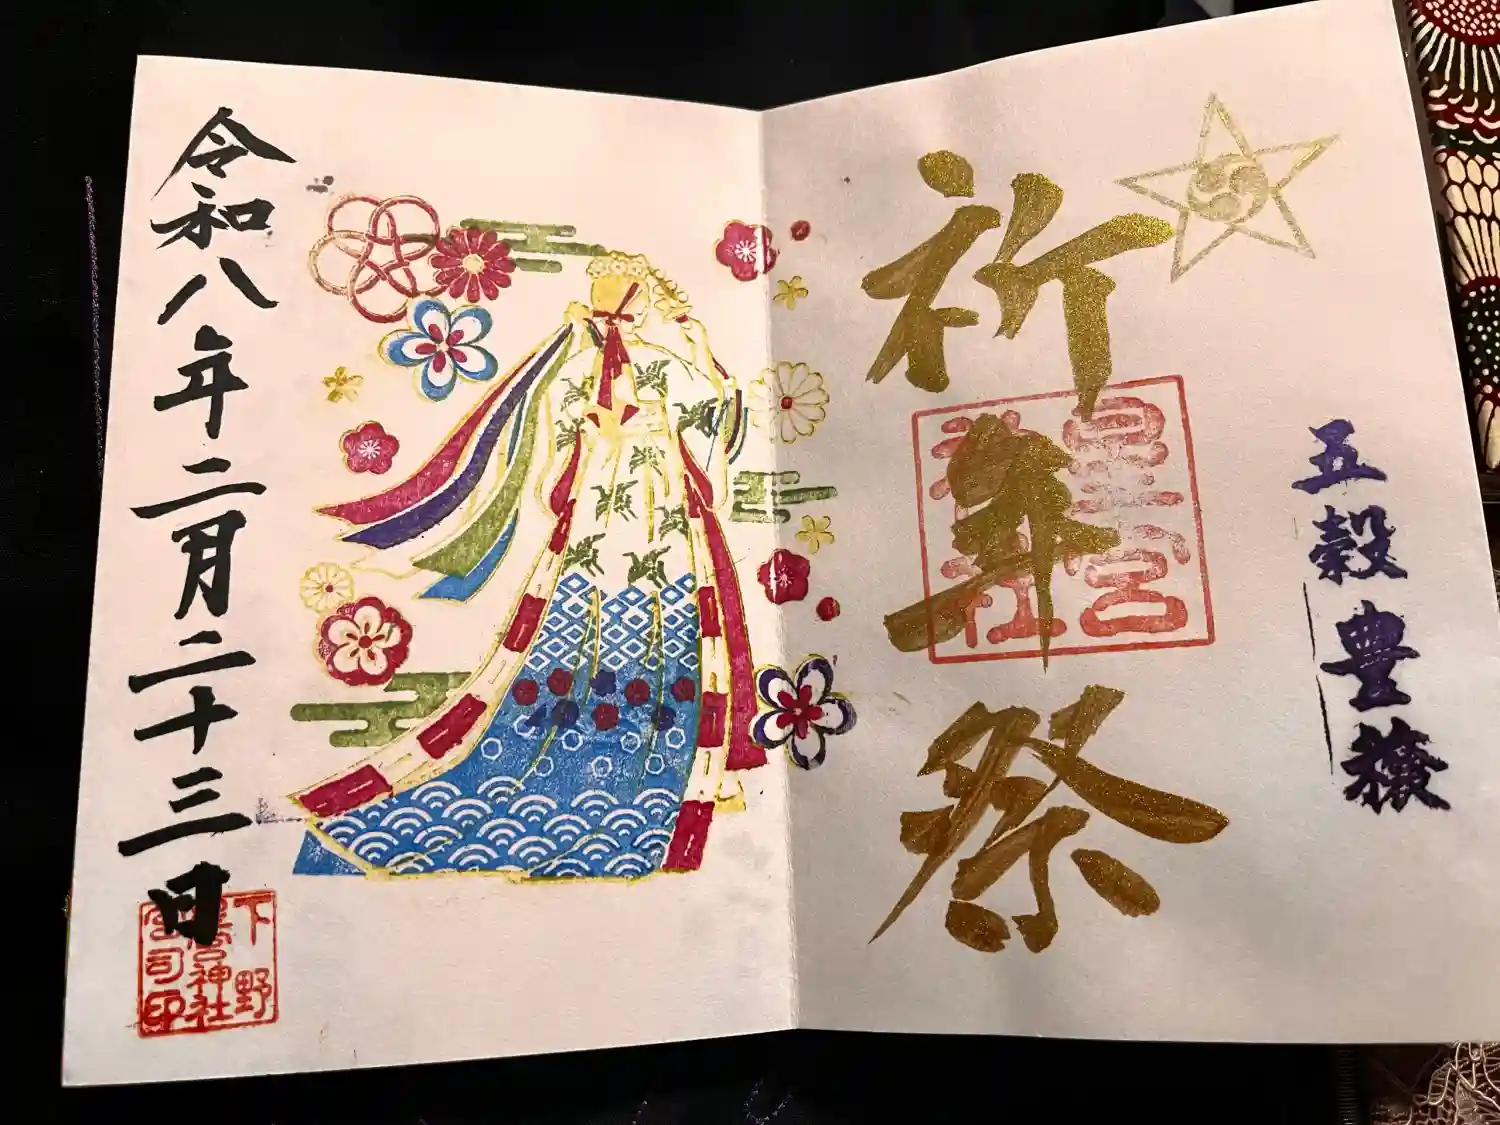 五穀豊穣
祈年祭
星宮
神社
令和八年二月二十三日
下野
星宮神社
宮司印